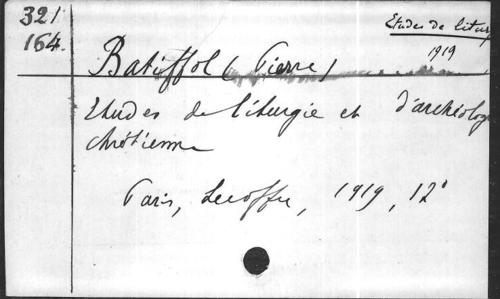 321
164.
Etudes de litur
1919
Batiffol (Pierre)
Etudes de liturgie et d'archéolog
chrétienne
Paris, Lecoffre, 1919, 12°